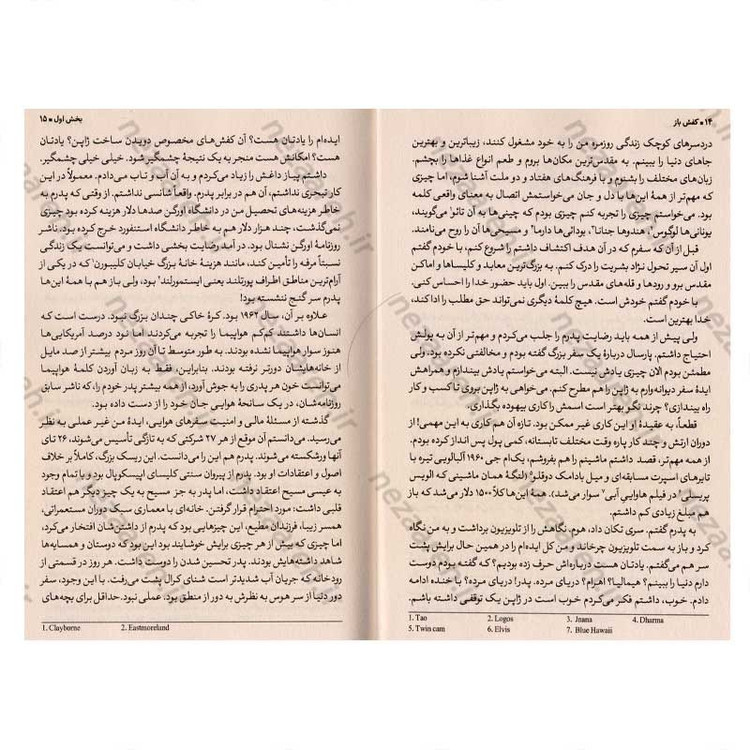 ۱۴ • کفش باز
دردسرهای کوچک زندگی روزمره من را به خود مشغول کنند، زیباترین و بهترین
جاهای دنیا را ببینم. به مقدس‌ترین مکان‌ها بروم و طعم انواع غذاها را بچشم.
زبان‌های مختلف را بشنوم و با فرهنگ‌های هفتاد و دو ملت آشنا شوم، اما چیزی
که مهم‌تر از همهٔ این‌ها با دل و جان می‌خواستمش اتصال به معنای واقعی کلمه
بود. می‌خواستم چیزی را تجربه کنم چیزی بودم که چینی‌ها به آن تائو۱ می‌گویند،
یونانی‌ها لوگوس۲، هندوها جنانا۳، بودائی‌ها دارما۴ و مسیحی‌ها آن را روح می‌نامند.
قبل از آن که سفرم که در آن هدف اکتشاف داشتم را شروع کنم، با خودم گفتم
اول آن سیر تحول نژاد بشریت را درک کنم. به بزرگ‌ترین معابد و کلیساها و اماکن
مقدس برو و رودها و قله‌های مقدس را ببین. اول باید حضور خدا را احساس کنی.
با خودم گفتم خودش است. هیچ کلمهٔ دیگری نمی‌تواند حق مطلب را ادا کند،
خدا بهترین است.
ولی پیش از همه باید رضایت پدرم را جلب می‌کردم و مهم‌تر از آن به پولش
احتیاج داشتم. پارسال دربارهٔ یک سفر بزرگ گفته بودم و مخالفتی نکرده بود، ولی
مطمئن بودم الان چیزی یادش نیست. البته می‌خواستم یادش بیندازم و همراهش
ایدهٔ سفر دیوانه‌وارم به ژاپن را هم مطرح کنم. می‌خواهی به ژاپن بروی تا کسب و کار
راه بیندازی؟ چرند نگو بهتر است اسمش را کاری بیهوده بگذاری.
قطعاً، به عقیدهٔ او این کاری غیر ممکن بود. تازه آن هم کاری به این مهمی! از
دوران ارتش و چند کار پاره وقت مختلف تابستانه، کمی پول پس انداز کرده بودم.
از همه مهم‌تر، قصد داشتم ماشینم را هم بفروشم، یک‌ام جی ۱۹۶۰ آلبالویی تیره با
تایرهای اسپرت مسابقه‌ای و میل بادامک دوقلو۵ (لنگهٔ همان ماشینی که الویس
پریسلی۶ در فیلم هاوایی آبی۷ سوار می‌شد). همهٔ این‌ها کلاً ۱۵۰۰ دلار می‌شد که باز
هم مبلغ زیادی کم داشتم.
به پدرم گفتم. سری تکان داد، هوم، نگاهش را از تلویزیون برداشت و به من نگاه
کرد و باز به سمت تلویزیون چرخاند و من کل ایده‌ام را در همین حال برایش پشت
هم می‌گفتم. یادتان هست درباره‌اش حرف زده بودیم؟ که گفته بودم دوست
دارم دنیا را ببینم؟ هیمالیا؟ اهرام؟ دریای مرده. پدر! دریای مرده؟ با خنده ادامه
دادم. خوب، داشتم فکر می‌کردم خوب است در ژاپن یک توقفی داشته باشم.
1. Tao 2. Logos 3. Jnana 4. Dharma
5. Twin cam 6. Elvis 7. Blue Hawaii
بخش اول • ۱۵
ایده‌ام را یادتان هست؟ آن کفش‌های مخصوص دویدن ساخت ژاپن؟ یادتان
هست؟ امکانش هست منجر به یک نتیجهٔ چشمگیر شود. خیلی خیلی چشمگیر.
داشتم پیاز داغش را زیاد می‌کردم و به آن آب و تاب می‌دادم. معمولاً در این
کار تبحری نداشتم، آن هم در برابر پدرم. واقعاً شانسی نداشتم. از وقتی که پدرم به
خاطر هزینه‌های تحصیل من در دانشگاه اورگن صدها دلار هزینه کرده بود چیزی
نمی‌گذشت، چند هزار دلار هم به خاطر دانشگاه استنفورد خرج کرده بود. ناشر
روزنامهٔ اورگن نشنال بود. در آمد رضایت بخشی داشت و می‌توانست یک زندگی
نسبتاً مرفه را تأمین کند، مانند هزینهٔ خانهٔ بزرگ خیابان کلیبورن۱ که در یکی از
آرام‌ترین مناطق اطراف پورتلند یعنی ایستمورلند۲ بود، ولی باز هم با همهٔ این‌ها
پدرم سر گنج ننشسته بود!
علاوه بر آن، سال ۱۹۶۲ بود. کرهٔ خاکی چندان بزرگ نبود. درست است که
انسان‌ها داشتند کم‌کم هواپیما را تجربه می‌کردند اما نود درصد آمریکایی‌ها
هنوز سوار هواپیما نشده بودند. به طور متوسط تا آن روز مردم بیشتر از صد مایل
از خانه‌هایشان دورتر نرفته بودند. بنابراین، فقط به زبان آوردن کلمهٔ هواپیما
می‌توانست خون هر پدری را به جوش آورد، از همه بیشتر پدر خودم را، که ناشر سابق
روزنامه‌شان، در یک سانحهٔ هوایی جان خود را از دست داده بود.
گذشته از مسئلهٔ مالی و امنیت سفرهای هوایی، ایدهٔ من غیر عملی به نظر
می‌رسید. می‌دانستم آن موقع از هر ۲۷ شرکتی که به تازگی تأسیس می‌شوند، ۲۶ تای
آنها ورشکسته می‌شوند. پدرم هم این را می‌دانست. این ریسک بزرگ، کاملاً بر خلاف
اصول و اعتقادات او بود. پدرم از پیروان سنتی کلیسای اپیسکوپال بود و با تمام وجود
به عیسی مسیح اعتقاد داشت، اما پدر به جز مسیح به یک چیز دیگر هم اعتقاد
قلبی داشت: مورد احترام قرار گرفتن. خانه‌ای با معماری سبک دوران مستعمراتی،
همسر زیبا، فرزندان مطیع، این چیزهایی بود که پدرم از داشتن‌شان افتخار می‌کرد،
اما چیزی که بیش از هر چیزی برایش خوشایند بود این بود که دوستان و همسایه‌ها
شاهد داشته‌هایش بودند. پدر تحسین شدن را دوست داشت. هر روز در قسمتی از
رودخانه که جریان آب شدیدتر است شنای کرال پشت می‌رفت. با این وجود، سفر
دور دنیا از سر هوس به نظرش به دور از منطق بود. عملی نبود. حداقل برای بچه‌های
1. Clayborne 2. Eastmoreland